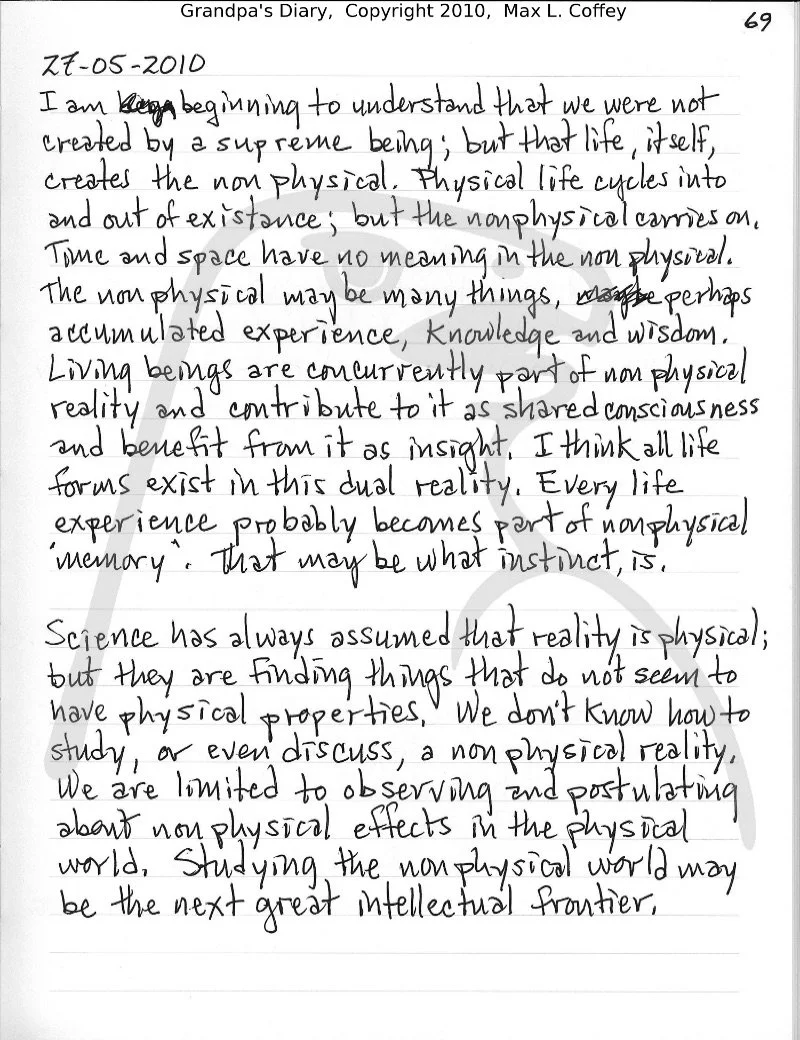 Grandpa's Diary, Copyright 2010, Max L. Coffey
69
27-05-2010
I am beginning to understand that we were not
created by a supreme being; but that life, itself,
creates the non physical. Physical life cycles into
and out of existance; but the nonphysical carries on.
Time and space have no meaning in the non physical.
The non physical may be many things, perhaps
accumulated experience, knowledge and wisdom.
Living beings are concurrently part of non physical
reality and contribute to it as shared consciousness
and benefit from it as insight. I think all life
forms exist in this dual reality. Every life
experience probably becomes part of nonphysical
"memory". That may be what instinct, is.
Science has always assumed that reality is physical;
but they are finding things that do not seem to
have physical properties. We don't know how to
study, or even discuss, a non physical reality.
We are limited to observing and postulating
about non physical effects in the physical
world. Studying the non physical world may
be the next great intellectual frontier.